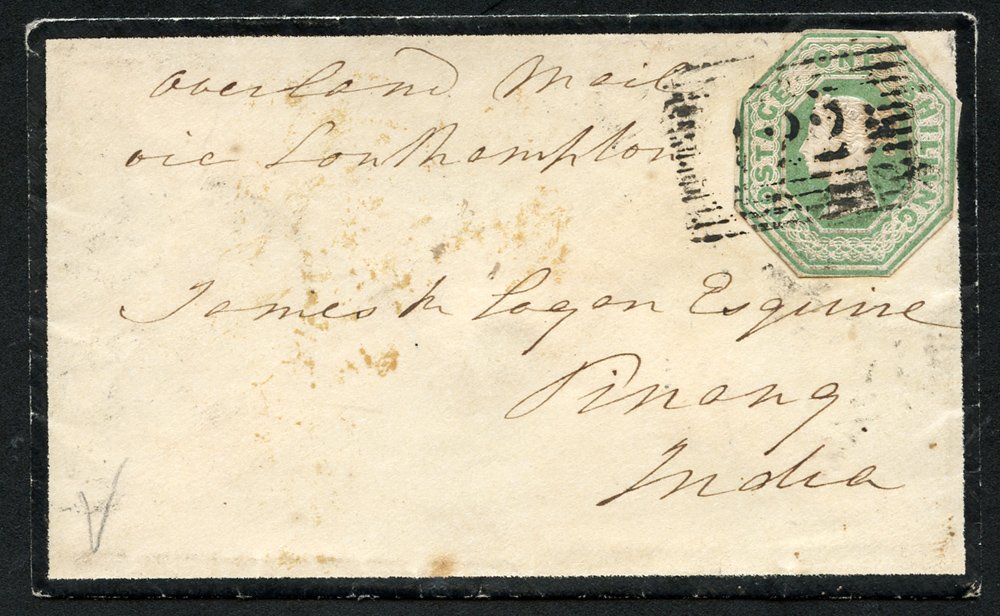 Overland Mail
via Southampton
POSTAGE ONE SHILLING
James R Logan Esquire
Pinang
India